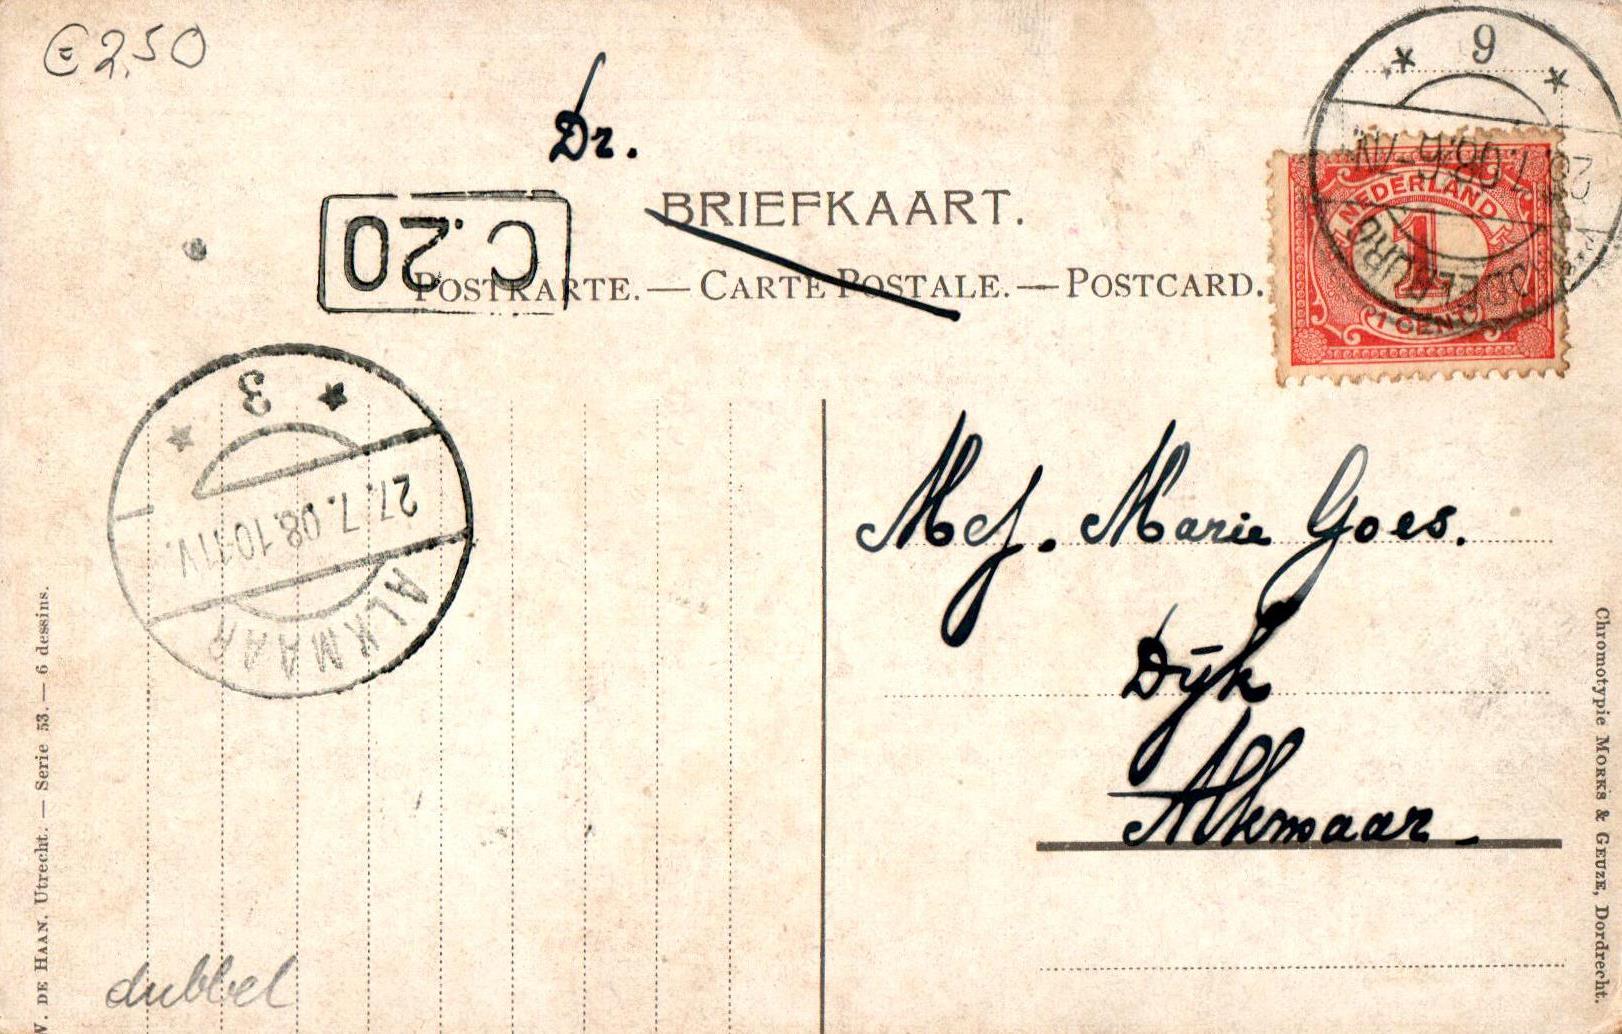 € 2,50
Dr.
BRIEFKAART.
POSTKARTE. — CARTE POSTALE. — POSTCARD.
C.20
9
NEDERLAND
1
1 CENT
3
27.7.08.10-11V.
ALKMAAR
Mej. Marie Goes.
Dijk
Alkmaar
DE HAAN, Utrecht. — Serie 53. — 6 dessins.
Chromotypie MORKS & GEUZE, Dordrecht.
dubbel